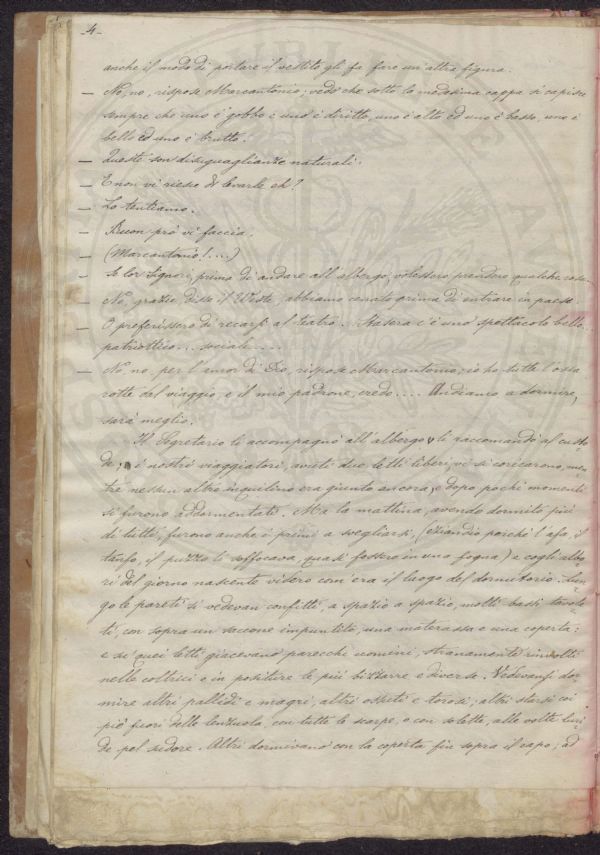 4.
anche il modo di portare il vestito gli fa fare un'altra figura.
— No, no, rispose Marcantonio; vedo che sotto la medesima cappa si capisce
sempre che uno è gobbo e uno è diritto, uno è alto ed uno è basso, uno è
bello ed uno è brutto.
— Queste son disuguaglianze naturali.
— E non vi riesce di levarle eh?
— Lo tentiamo.
— Buon prò vi faccia.
— (Marcantonio!....)
— Se lor signori, prima di andare all'albergo, volessero prendere qualche cosa.
— No, grazie, disse il abbiamo cenato prima di entrare in paese.
— O preferissero di recarsi al teatro. Stasera c'è uno spettacolo bello...
patriottico... sociale.....
— No no, per l'amor di Dio, rispose Marcantonio; io ho tutte l'ossa
rotte dal viaggio, e il mio padrone, credo.... Andiamo a dormire,
sarà meglio.
Il Segretario li accompagnò all'albergo li raccomandò al custo-
de; i nostri viaggiatori, avuti due letti liberi, vi si coricarono, men-
tre nessun altro inquilino era giunto ancora, e dopo pochi momenti
si furono addormentati. Ma la mattina, avendo dormito più
di tutti, furono anche i primi a svegliarsi, (eziandio perchè l'afa, il
tanfo, il puzzo li soffocava, quasi fossero in una fogna) e cogli albo-
ri del giorno nascente videro com'era il luogo del dormitorio. Lun-
go le pareti si vedevan confitti, a spazio a spazio, molti bassi tavola-
ti, con sopra un saccone impuntito, una materassa e una coperta:
e su quei letti giacevano parecchi uomini, stranamente rinvolti
nelle coltrici e in positure le più bizzarre e diverse. Vedevansi dor-
mire altri pallidi e magri, altri ossuti e torosi; altri starsi coi
piè fuori delle lenzuola, con tutte le scarpe, o con solette, alle volte luri-
de pel sudore. Altri dormivano con la coperta fin sopra il capo; ad